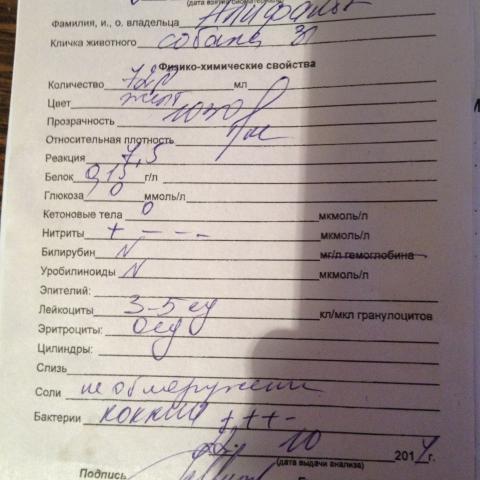 (дата взятия биоматериала)
Фамилия, и., о. владельца
Кличка животного собака
Физико-химические свойства
Количество мл
Цвет желт
Прозрачность
Относительная плотность 1030
Реакция 7,5
Белок 0,15 г/л
Глюкоза 0 ммоль/л
Кетоновые тела 0 мкмоль/л
Нитриты + - - - мкмоль/л
Билирубин N мг/л гемоглобина
Уробилиноиды N мкмоль/л
Эпителий:
Лейкоциты 3-5 кл/мкл гранулоцитов
Эритроциты:
Цилиндры:
Слизь
Соли не обнаружены
Бактерии кокки + + + -
10 2014 г.
(дата выдачи анализа)
Подпись